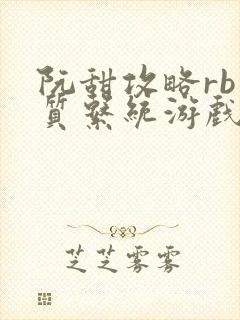 阮甜攻略rb
質繫統游戲
芝芝雾雾